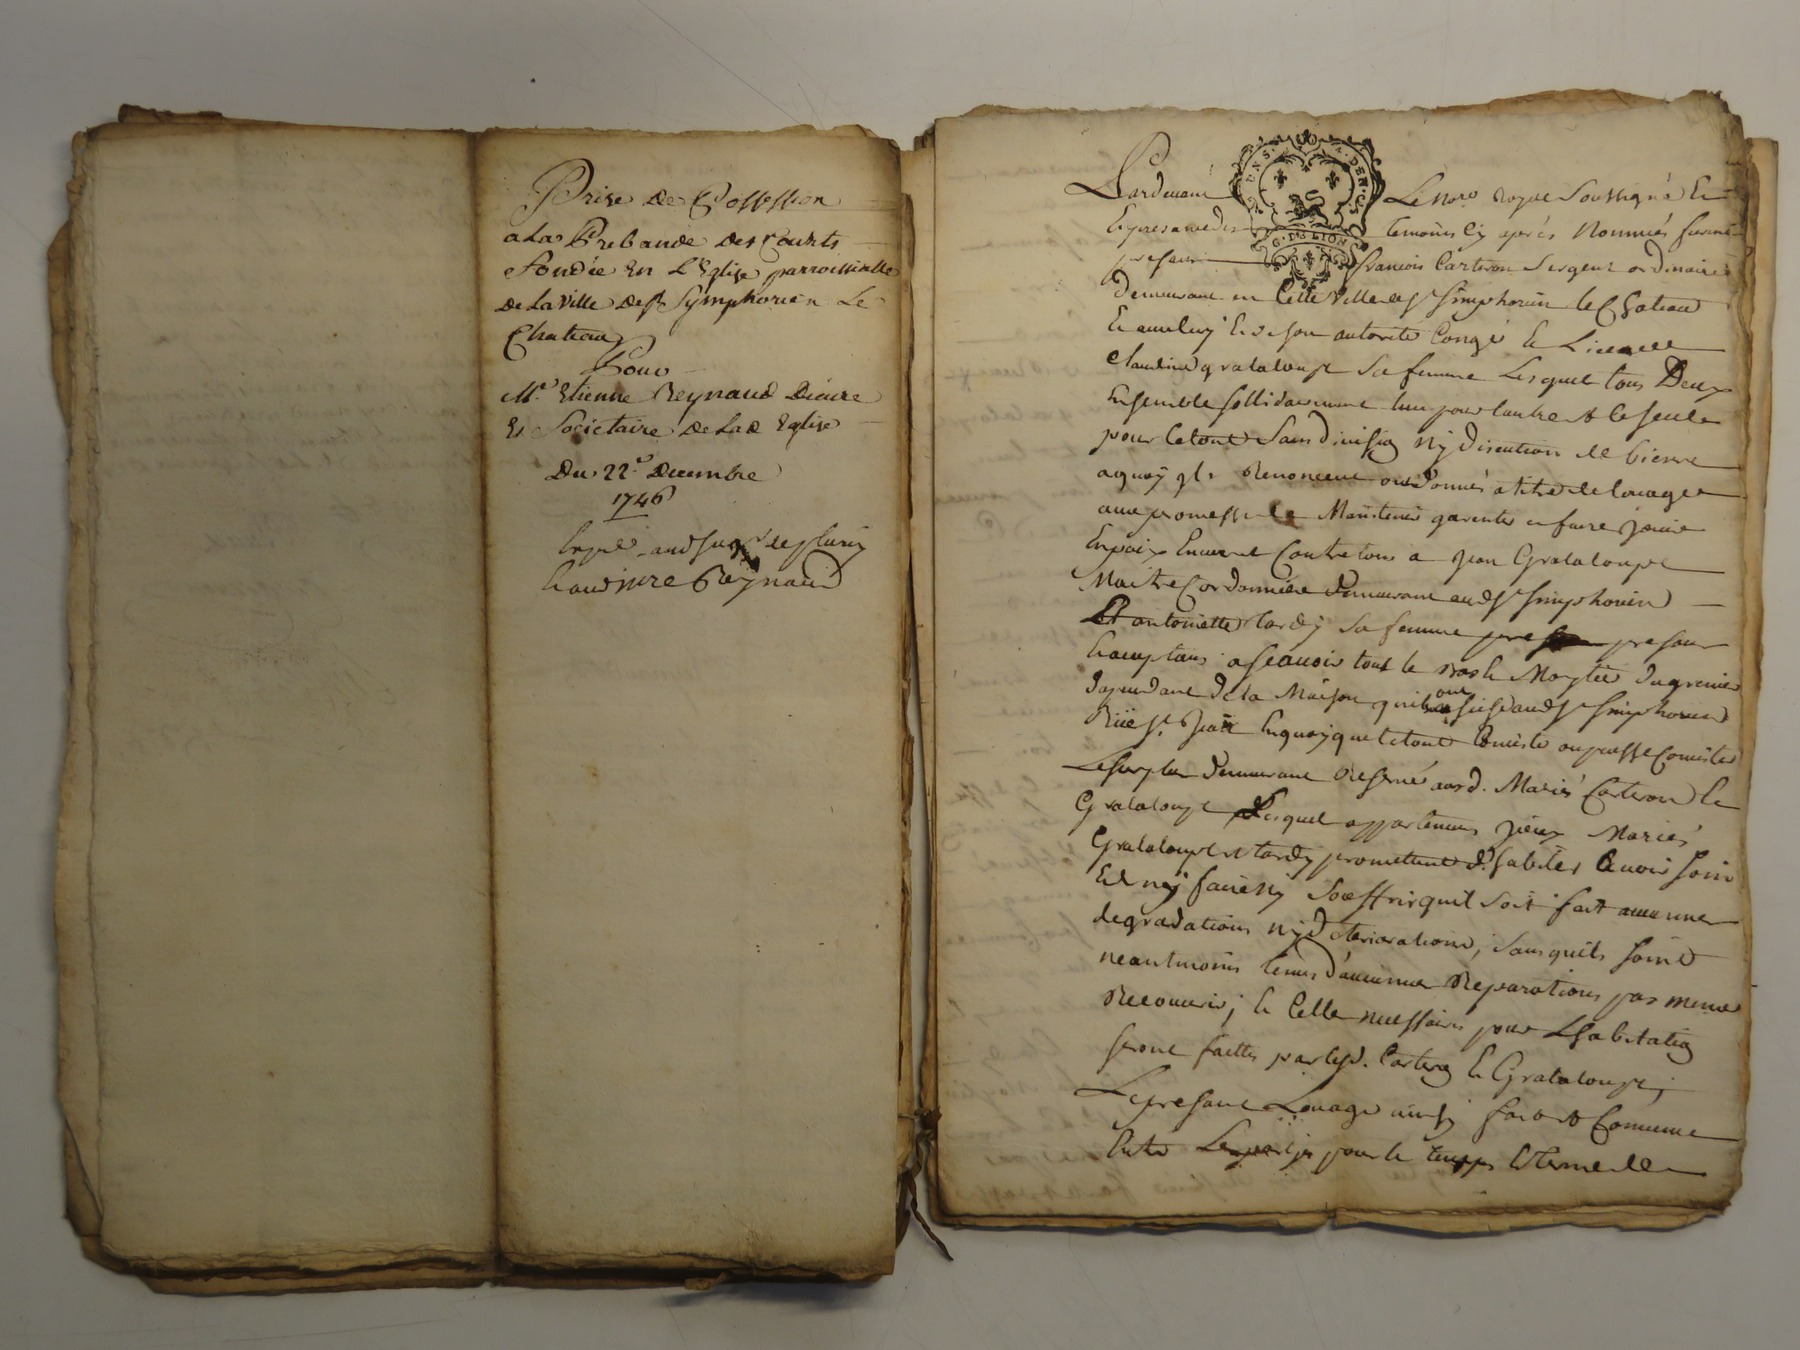 Prise de Possession
a La Prebande des Courts
fondée En L'Eglise parroissialle
de La Ville de St Symphorien Le
Chateau
Pour
Me. Etienne Reynaud Diacre
Et Societaire de Lad Eglise
Du 22e. Decembre
1746
Reynaud
Pardevant Le Nore royal Soussigné Et
En presance des temoins Cy aprés Nommés furent
presens francois Carteron Sergent ordinaire
demeurant en Cette Ville de St Simphorien le Chateau
Et de son autorité Congé et Licence
Claudine grataloup sa femme Lesquels tous Deux
Ensemble sollidairement lun pour lautre et le seul
pour le tout Sans Division ny discution de biens
a quoy ils Renoncent ont donnés a titre de louage
avec promesse de Maintenir garentir en faire jouir
En paix Envers et Contre tous a Jean Grataloup
Maitre Cordonnier demeurant aud St Simphorien
Et antoinette tardy sa femme presens
Et acceptans a scavoir tout le Moytié du grenier
dependant de la Maison quils ont scise aud St Simphorien
Rüe St. Jean En quoy que le tout Consiste ou puisse Consister
Le surplus demeurant Reservé aud. Mariés Carteron Et
Grataloup Lesquels Mariés
Grataloup et tardy promettent d'habiter avoir soin
Et ny faire ny Souffrir quil soit fait aucunes
degradations ny deteriorations, sans quils soint
neantmoins tenus d'aucunes Reparations pas meme
Recouvrir; et Celles necessaires pour Lhabitation
seront faittes par lesd. Carteron Et Grataloup;
Le present Louage ainsy fait et Convenu
Entre Les parties pour le temps Et terme de
G. DE LION